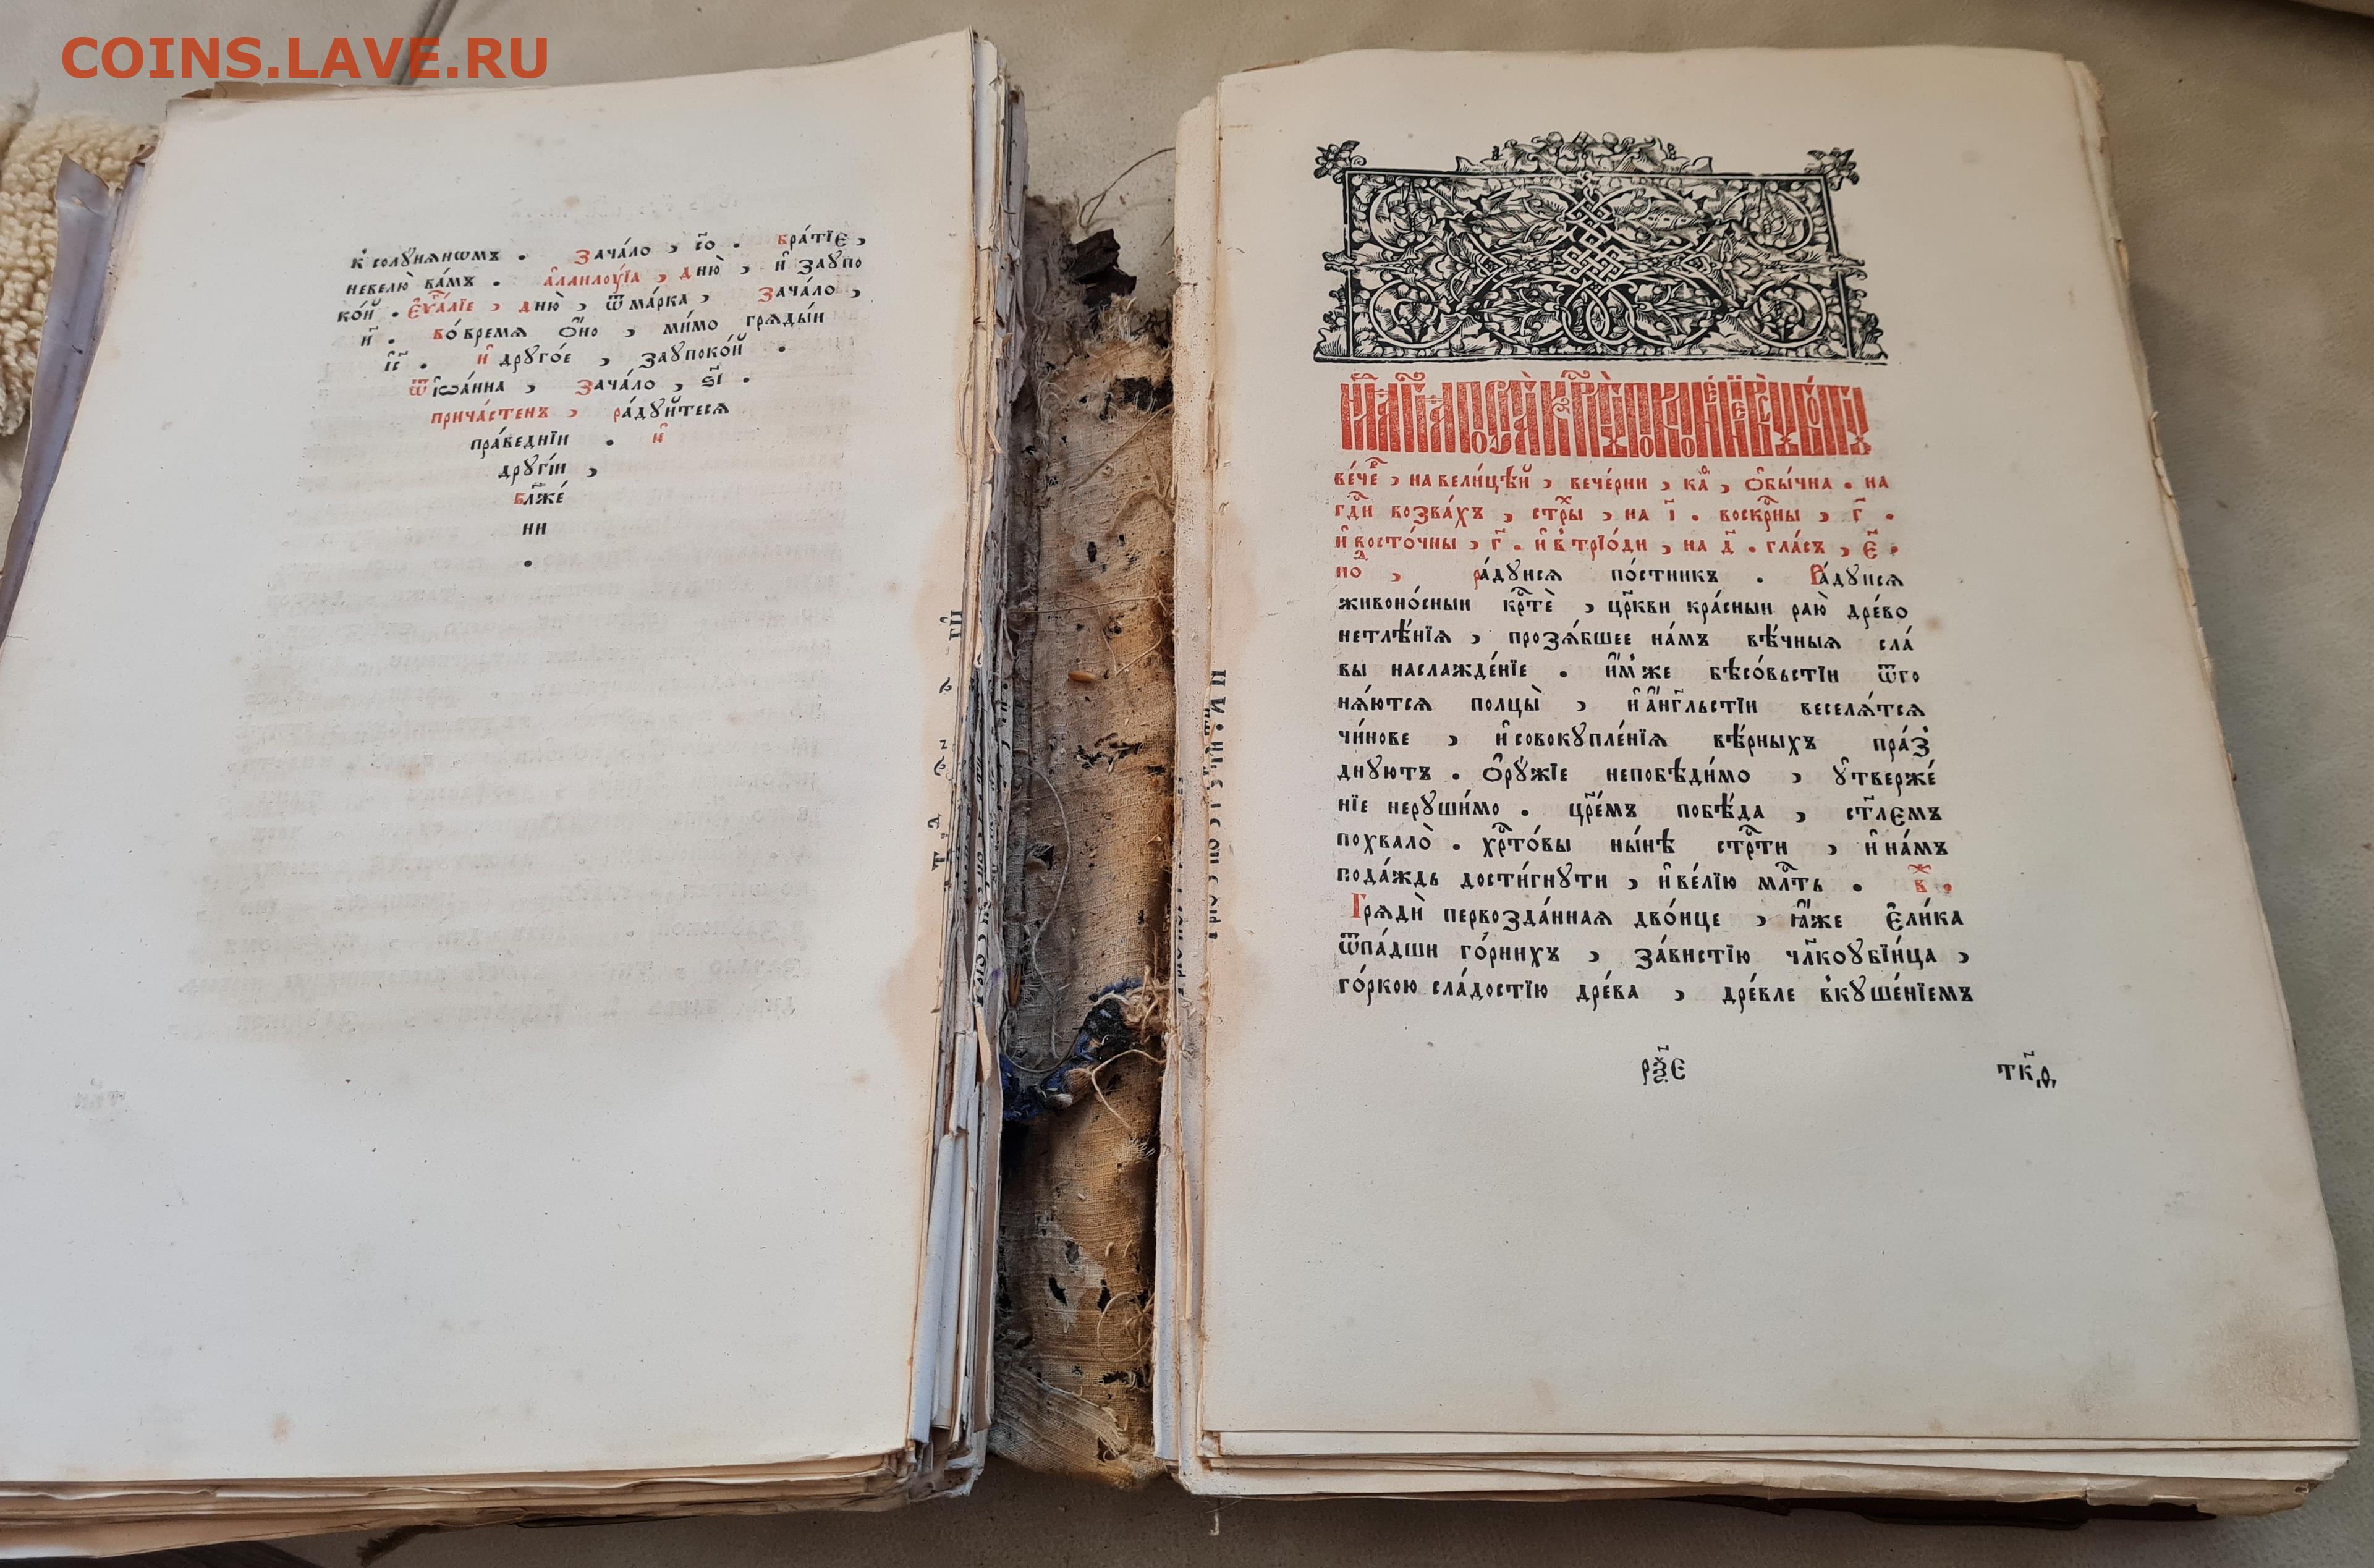 COINS.LAVE.RU
к солꙋнѧнѡмъ . Зача́ло , с҃о . Бра́тїє ,
невелю̀ ва́мъ . а҆лаилꙋ́їа , дню̀ , и҆ Заупо
ко́й . Є҆ѵⷢ҇а́лїе , дню̀ , ѿ ма́рка , Зача́ло ,
и҃ . Во́времѧ о҆́но , ми́мо грѧды́и
і҆с҃ . и҆ дрꙋго́е , Заупоко́й .
ѿ і҆ѡа́нна , Зача́ло , ѕ҃і .
прича́стенъ , ра́дꙋйтесѧ
пра́веднїи . и҆
дрꙋгі́и ,
бл҃же́
ни
.
ве́чеⷬ҇ , на вели́цѣй , вече́рни , каѳ , ѻ҆бы́чна . на
гдⷭ҇и возва́хъ , стⷯры , на і҃ . воскрⷭ҇ны , г҃ .
и҆ восто́чны , г҃ . и҆ в̾ трїо́ди , на д҃ . гла́съ , є҃ .
поⷣ , ра́дꙋисѧ по́стникъ . Ра́дꙋисѧ
живоно́сныи крⷭ҇тѐ , цр҃кви кра́сныи раю̀ дре́во
нетлѣ́нїѧ , прозѧ́бшее на́мъ вѣ́чныѧ сла́
вы наслажде́нїе . и҆́мже бѣсо́вьстїи ѿго
нѧ́ютсѧ полцы̀ , и҆ а҆́нг҃льстїи веселѧ́тсѧ
чи́нове , и҆ совокꙋпле́нїѧ вѣ́рныхъ пра́з̾
днꙋютъ . Ѻ҆рꙋ́жїе непобѣди́мо , ᲂу҆тверже́
нїе нерꙋши́мо . цр҃е́мъ побѣ́да , ст҃лємъ
похвало̀ . хрⷭ҇то́вы ны́нѣ стрⷭ҇ти , и҆ на́мъ
пода́ждь дости́гнꙋти , и҆ ве́лїю млⷭ҇ть . вⷤ .
Грѧдѝ первозда́ннаѧ дво́ице , ꙗ҆́же Є҆ли́ка
ѿпа́дши го́рнихъ , за́вистїю чл҃коубі́ица ,
го́ркою сла́достїю дре́ва , дре́вле в̾кꙋше́нїемъ
рѯ҃є
тк҃д